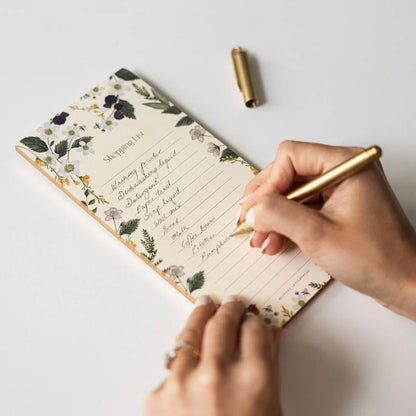 Shopping List
Washing powder
Dishwashing liquid
Detergent
Paper towel
Soap liquid
Wall mix
Bread
Milk
Coffee beans
Pumpkin